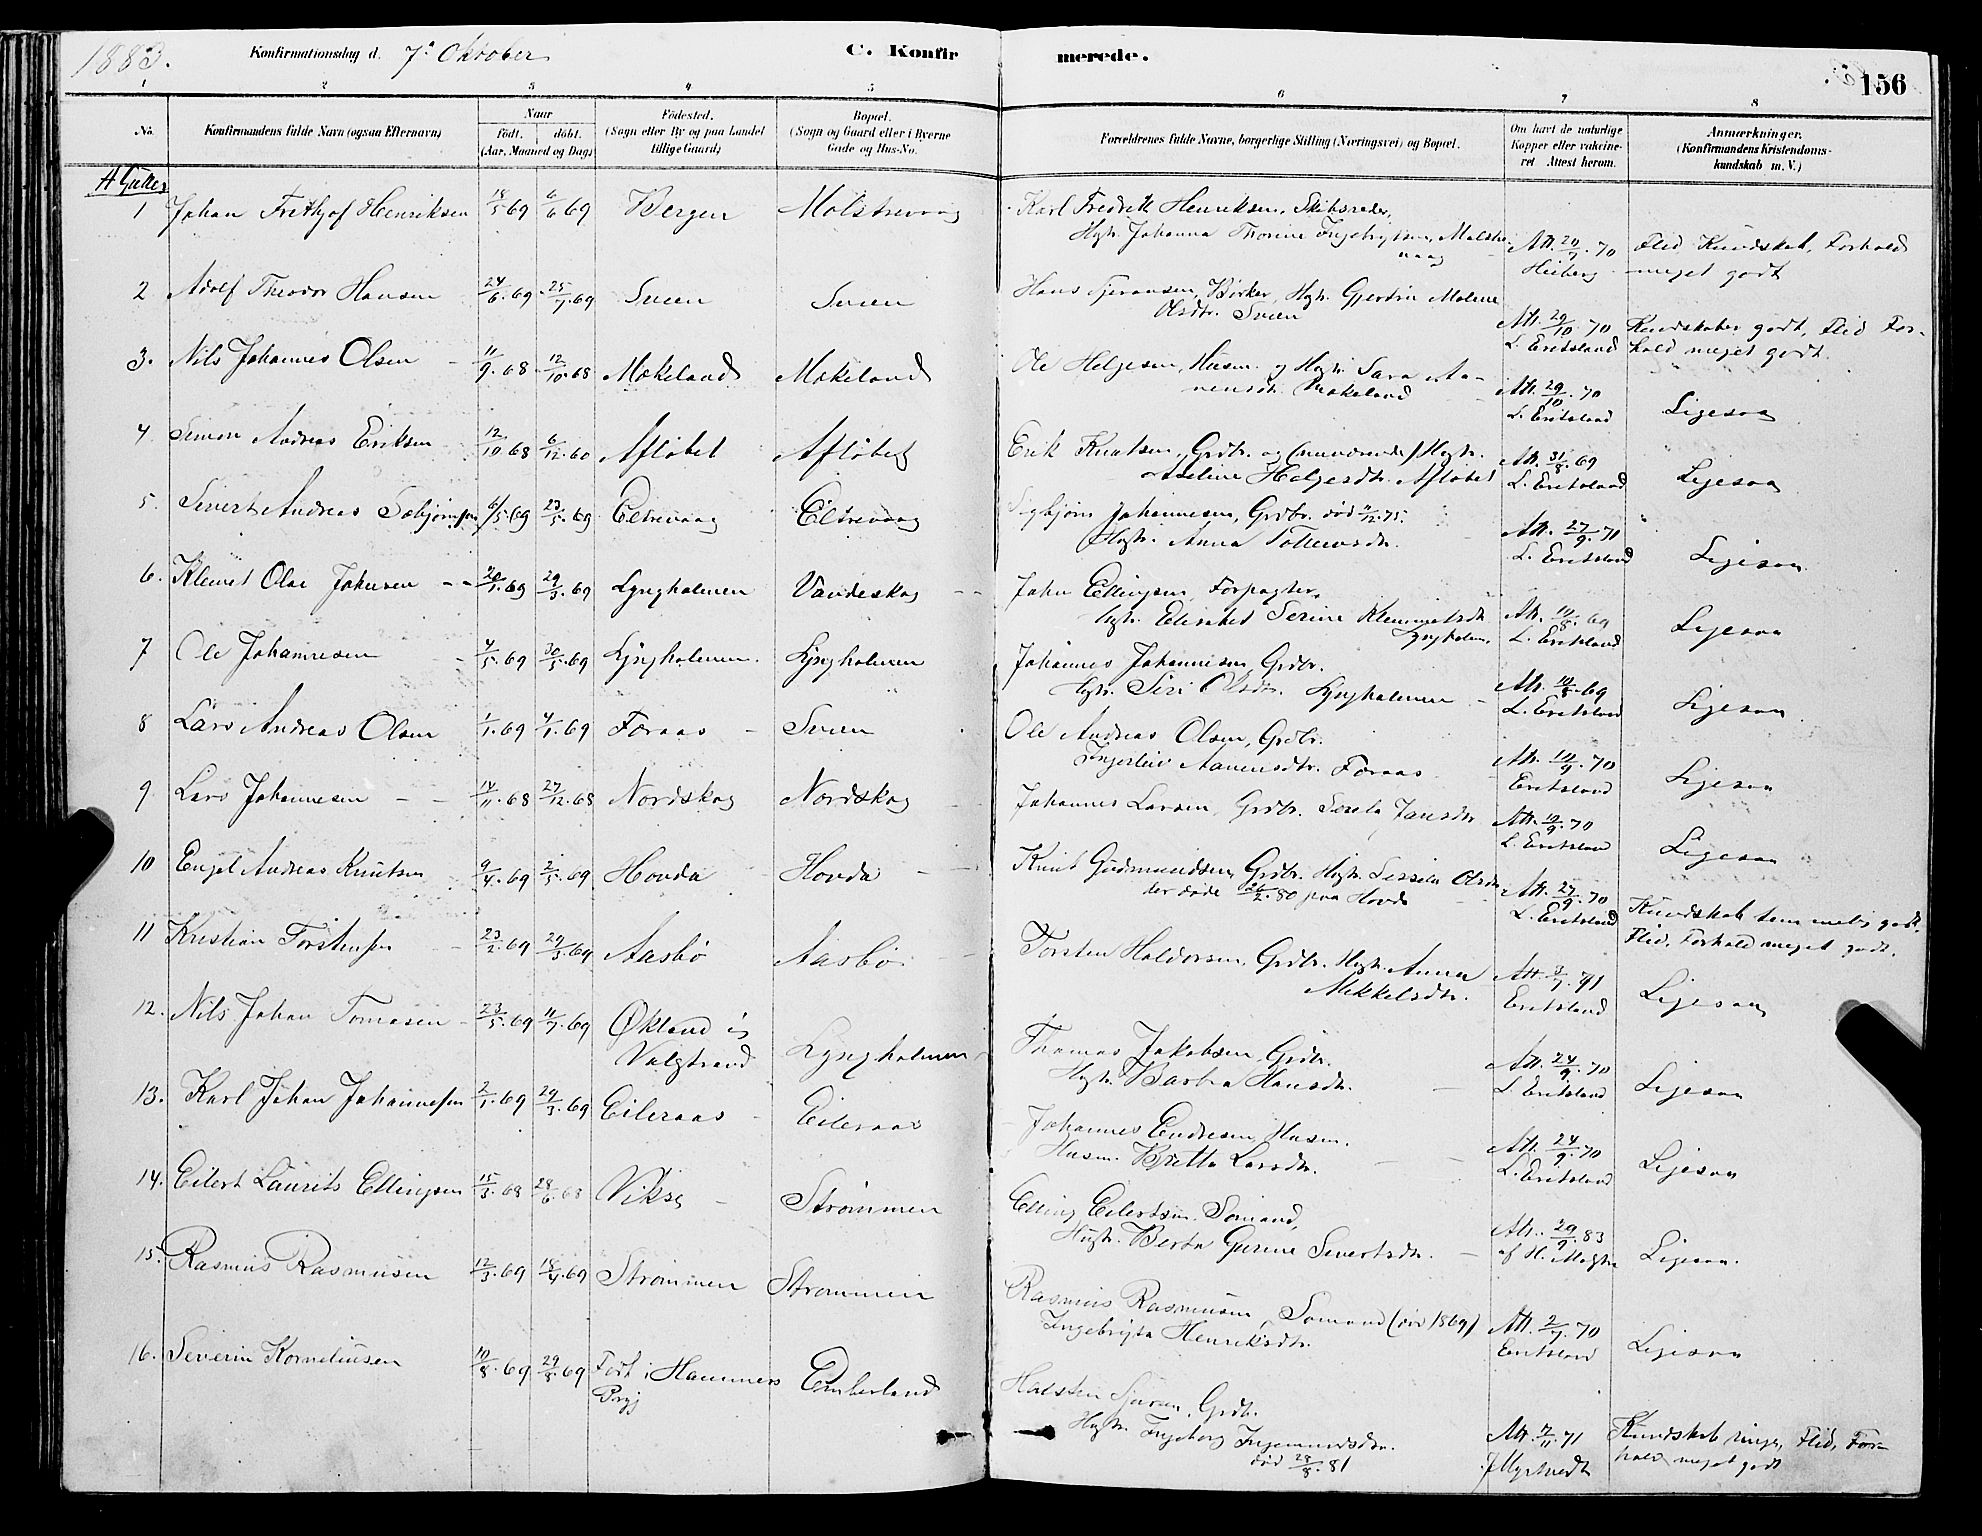 1883. Konfirmationsdag d. 7de Oktober C. Konfirmerede. 156
1 2 3 4 5 6 7 8
No. Konfirmandens fulde Navn (ogsaa Efternavn) Naar født. døbt. (Aar, Maaned og Dag) Fødested. (Sogn eller By og paa Landet tillige Gaard) Bopæl. (Sogn og Gaard eller i Byerne Gade og Hus-No. Forældrenes fulde Navne, borgerlige Stilling (Næringsvei) og Bopæl. Om havt de naturlige Kopper eller vaccineret Attest herom. Anmærkninger. (Konfirmandens Kristendomskundskab m. V.)
A Gutter
1 Johan Frithjof Henriksen 18/5 69 6/6 69 Bergen Molstrevaag Karl Fredrik Henriksen, Skibsreder,
Hgtr. Johanna Thorine Ingebrigtsen, Molstrevaag Att. 20/7 70 Heiberg Flid, Kundskab, Forhold meget godt
2 Adolf Theodor Hansen 24/6 69 25/7 69 Sveen Sveen Hans Tjeransen, Kirker, Hgtr. Gjertrin Malene
Olsdtr. Sveen Att. 29/10 70 L. Eriksland Kundskaber godt, Flid Forhold meget godt.
3. Nils Johannes Olsen 11/9 68 12/10 68 Mækeland Mækeland Ole Helgesen, Husm. og Hgtr. Sara Aanensdtr. Mækeland Att. 29/10 70 L. Eriksland Ligesaa
4 Simon Andreas Eriksen 12/10 68 6/12 60 Afløbet Afløbet Erik Knutsen, Grdbr. og (nuværende) Hgtr.
Helgesdtr. Afløbet Att. 31/8 69 L. Eriksland Ligesaa
5. Sivert Andreas Sæbjørnsen 6/5 69 23/5 69 Eltrevaag Eltrevaag Sigbjørn Johannesen, Grdbr. død 4/12 75.
Hgtr. Anna Tollevsdtr. Att. 27/9 71 L. Eriksland Ligesaa
6. Klemet Olai Johnsen 20/1 69 29/3 69 Lyngholmen Vandeskog John Ellingsen, Forpagter,
Hgtr. Elisabet Serine Klemmetsdtr. Lyngholm. Att. 10/8 69 L. Eriksland Ligesaa
7 Ole Johannesen 4/5 69 30/5 69 Lyngholmen Lyngholmen Johannes Johannesen, Grdbr.
Hgtr. Siri Olsdtr. Lyngholmen Att. 10/8 69 L. Eriksland Ligesaa
8 Lars Andreas Olsen 1/1 69 4/1 69 Foraas Sveen Ole Andreas Olsen, Grdbr.
Ingerleiv Aanensdtr. Foraas Att. 10/9 70 Eriksland Ligesaa
9. Lars Johannesen 14/11 68 27/12 68 Nordskog Nordskog Johannes Larsen, Grdbr. Jansdtr Att. 10/9 70 L. Eriksland Ligesaa
10 Engel Andreas Knutsen 9/4 69 2/5 69 Hovda Hovda Knut Gudmundsen, Grdbr. Hgtr. Olsdtr
der døde 26/2 80 paa Hovda Att. 27/9 70 L. Eriksland Kundskab temmelig godt. Flid, Forhold meget godt.
11 Kristian Torstensen 23/2 69 29/3 69 Aasbø Aasbø Torsten Haldorsen, Grdbr. Hgtr. Anna
Mikkelsdtr. Att. 3/7 71 Eriksland Ligesaa
12. Nils Johan Tomasen 23/5 69 11/7 69 Økland i Valestrand Lyngholmen Thomas Jakobsen, Grdbr.
Hgtr. Barbra Hansdtr. Att. 24/9 70 L. Eriksland Ligesaa
13. Karl Johan Johannesen 2/1 69 29/3 69 Eileraas Eileraas Johannes Endresen Husm.
Husm. Britta Larsdtr. Att. 24/9 70 L. Eriksland Ligesaa
14. Eilert Laurits Ellingsen 15/3 68 28/6 68 Vikse Strømmen Elling Eilertsen, Sømand,
Hgtr. Berta Gurine Sivertsdtr. Att. 29/9 83 af H. Ligesaa.
15. Rasmus Rasmusen 12/3 69 18/4 69 Strømmen Strømmen Rasmus Rasmusen, Sømand (død 1869)
Ingebrigta Henriksdtr. Att. 2/7 70 Eriksland Ligesaa
16. Severin Korneliusen 10/8 69 29/8 69 Født i Hammers Prgj Emberland Halsten Sjursen, Grdbr.
Hgtr. Ingeborg Ingemundsdtr.
død 28/8 81 Att. 7/11 71 J. Myrtvedt Kundskab ringe, Flid, Forhold meget godt